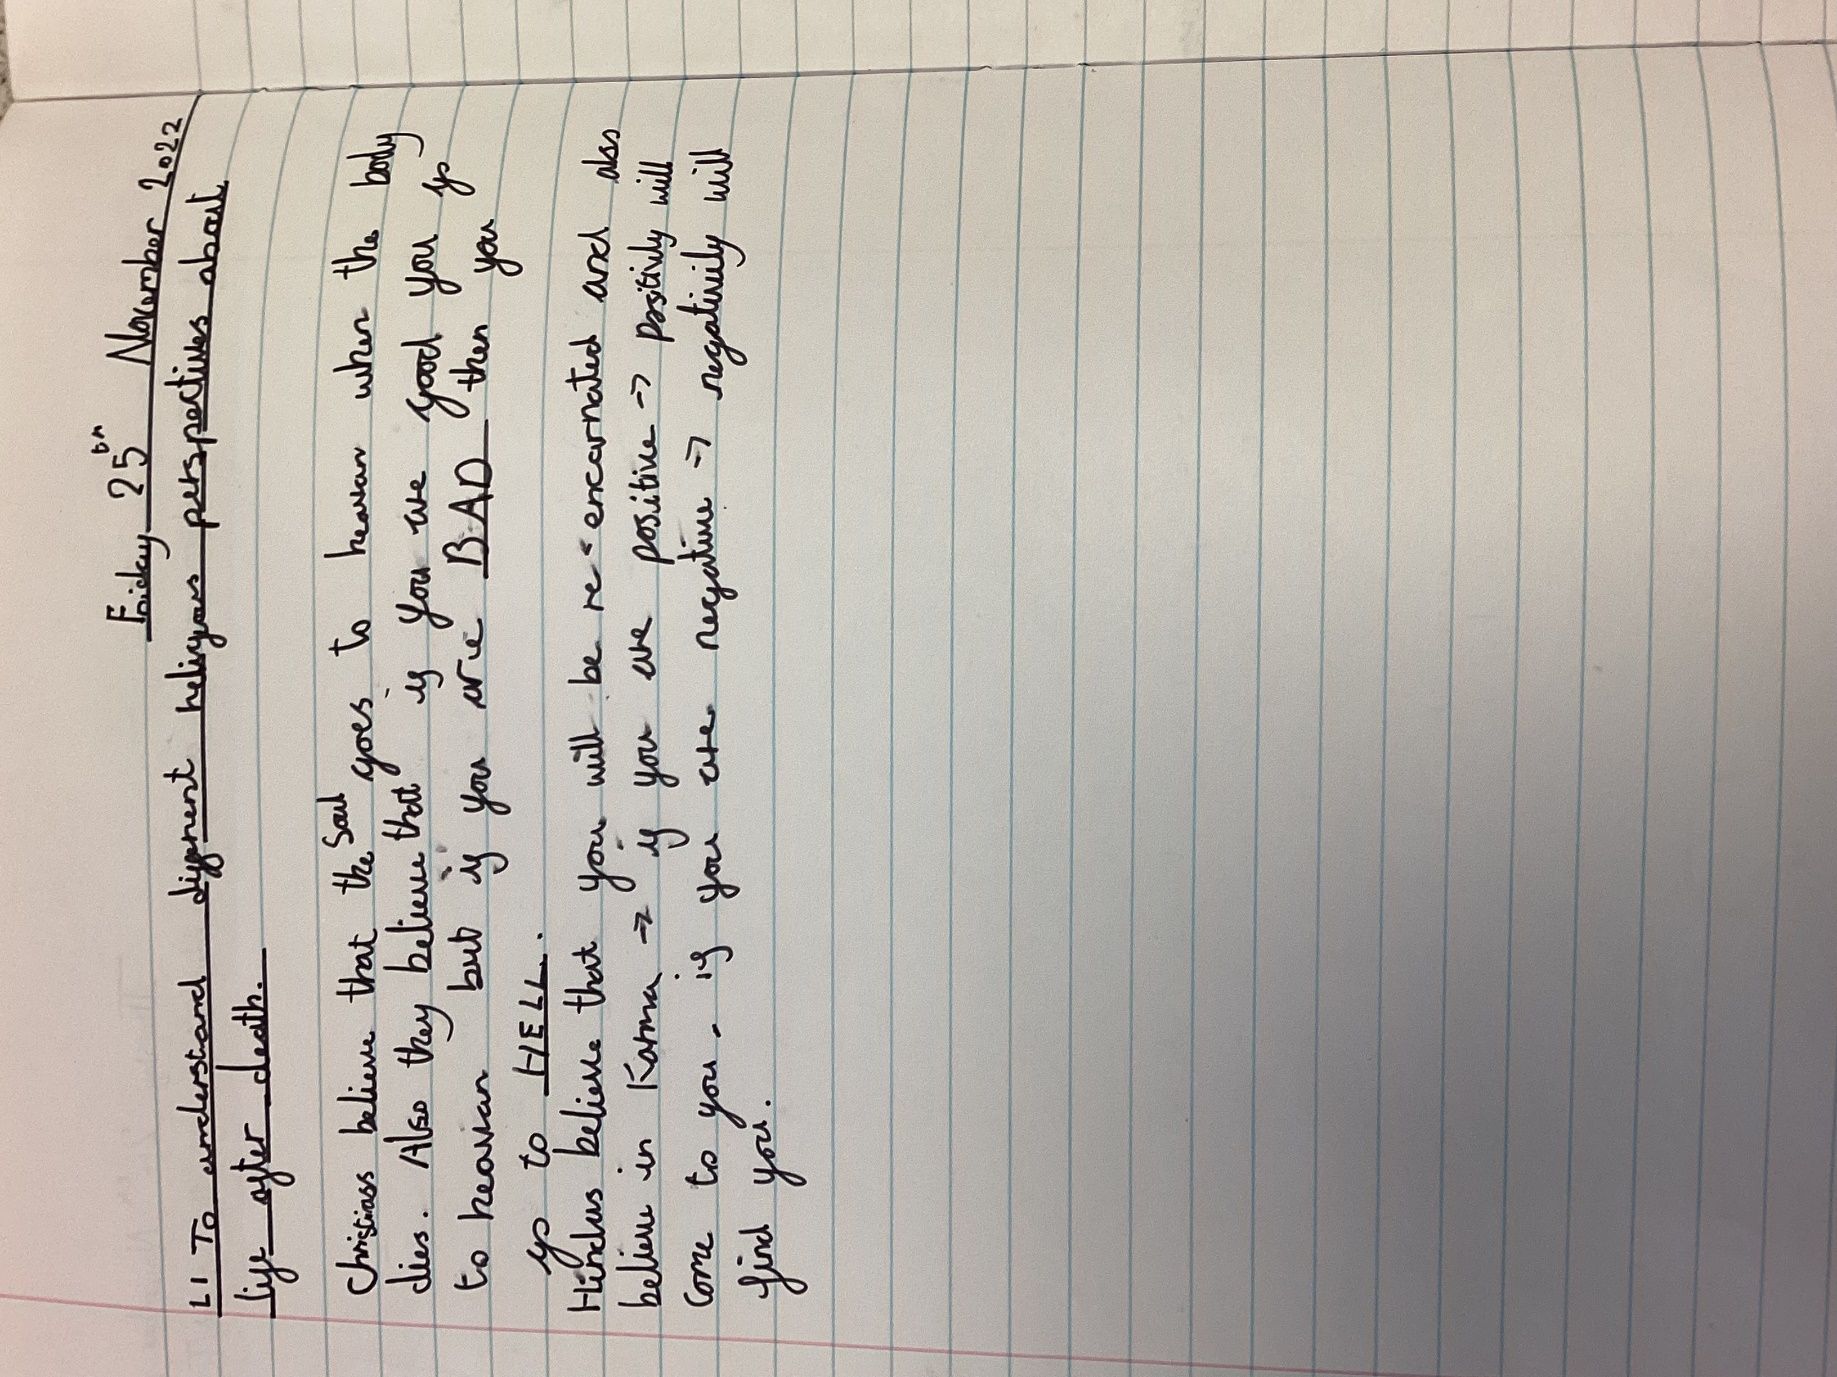 Friday 25th November 2022
LI To understand different religous perspectives about
life after death.
Christians believe that the soul goes to heavan when the body
dies. Also they believe that if you are good you go
to heavan but if you are BAD then you
go to HELL.
Hindus believe that you will be re-encarnated and also
believe in Karma → if you are positive → positivly will
come to you. if you are negative → negativily will
find you.